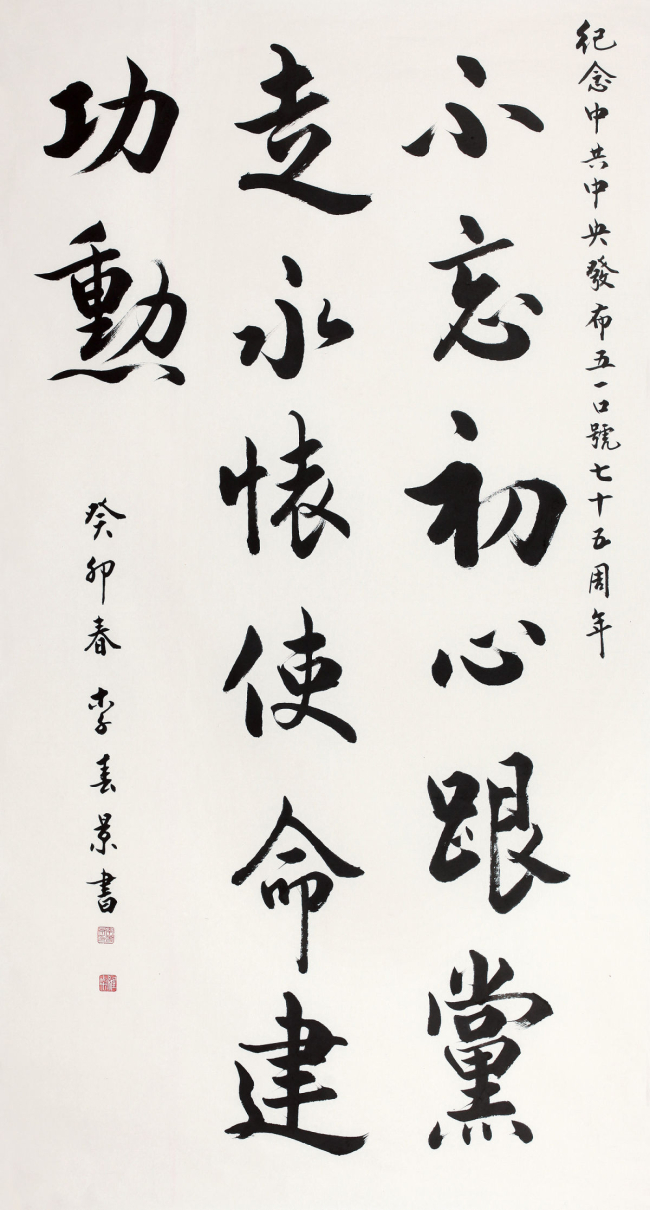 紀念中共中央發布五一口號七十五周年
不忘初心跟黨
走永懐使命建
功勳
癸卯春 李春景書